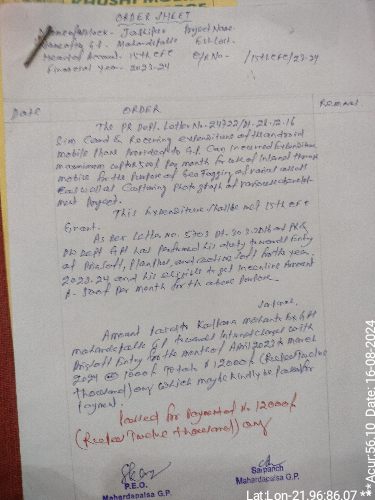 ORDER SHEET
Name of Block - Jashipur Project Name
Name of G.P. - Mahardapalsa Est. Cost -
Head of Account - 15th CFC C/R No - /15th CFC/23-24
Financial Year - 2023-24
Date ORDER Remark
The PR Deptt. Letter No-24722/Dt-28-12-16
Sim Card & Recurring expenditure of the android
mobile phone provided to G.P. Can incurred Expenditure
maximum up to Rs 500/- per month for use of internet through
mobile for the purpose of Geo tagging of various assets
as well as Capturing Photograph of various development
ment Project.
This Expenditure shall be met 15th CFC
Grant.
As per Letter no. 5703 Dt-30-3-2018 of PR&
DW Deptt G.P. has performed his duty towards Entry
of Priasoft, Planplus, and for the year
2023-24 and his eligible to get Incentive Amount
Rs - 500/- Per month for the above purpose.
Amount Kalpana Mohanta Ex G.P.
Mahardapalsa G.P. towards Internet charges with
Priasoft Entry for the month of April 2023 to March
2024 @ 1000/- Total Rs 12000/- (Rupees Twelve
thousand) only which may be kindly be passed for
payment.
Passed for Payment of Rs 12000/-
(Rupees Twelve thousand) only
P.E.O. Sarpanch
Mahardapalsa G.P. Mahardapalsa G.P.
Lat:Lon-21.96:86.07
**Acur:56.10 Date:16-08-2024